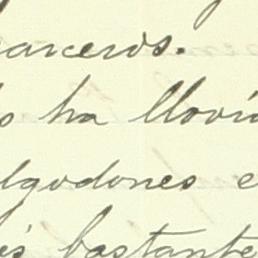 arceros.
ha llovi
lgodones e
és bastante